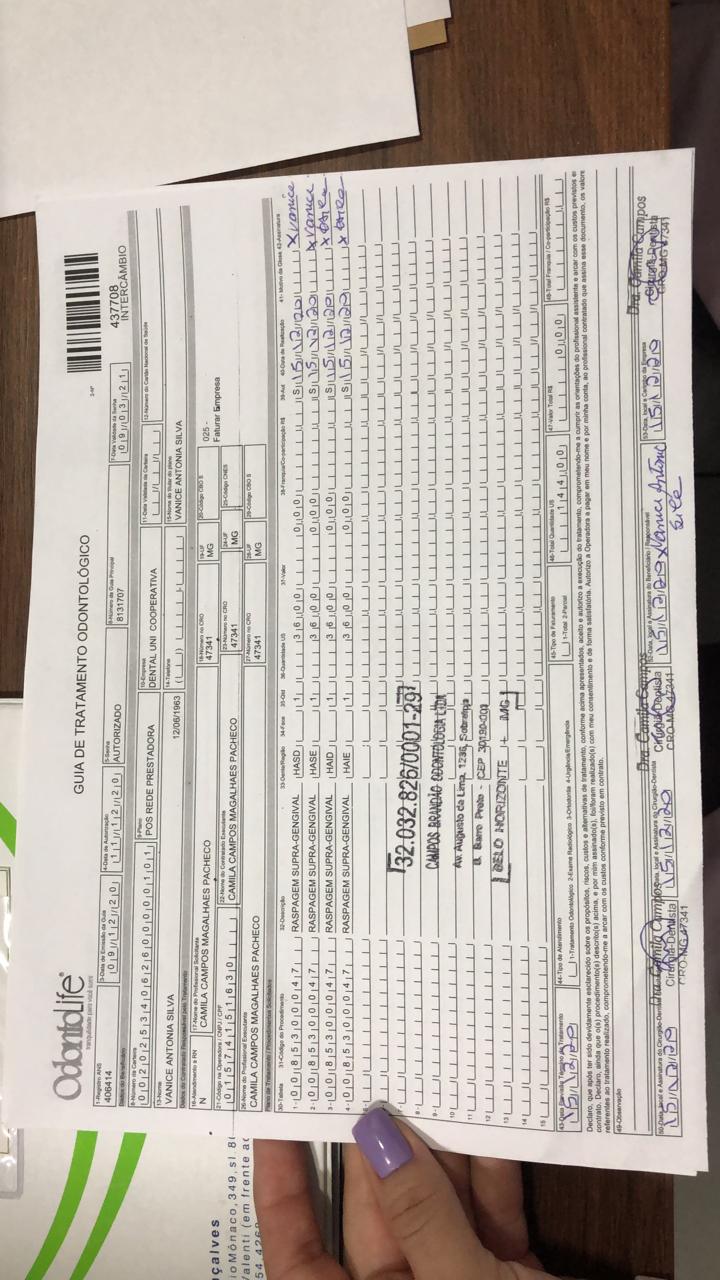 OdontoLife
tranquilidade para você sorrir
GUIA DE TRATAMENTO ODONTOLÓGICO
2-Nº
437708
INTERCÂMBIO
1-Registro ANS
406414
3-Data de Emissão da Guia
09/12/20
4-Data de Autorização
11/12/20
5-Senha
AUTORIZADO
6-Número da Guia Principal
8131707
7-Data Validade da Senha
09/03/21
Dados do Beneficiário
8-Número da Carteira
00202534062600000101
9-Plano
POS REDE PRESTADORA
10-Empresa
DENTAL UNI COOPERATIVA
11-Data Validade da Carteira
12-Número do Cartão Nacional de Saúde
13-Nome
VANICE ANTONIA SILVA
12/06/1963
14-Telefone
15-Nome do titular do plano
VANICE ANTONIA SILVA
Dados do Contratado Responsável pelo Tratamento
16-Atendimento a RN
N
17-Nome do Profissional Solicitante
CAMILA CAMPOS MAGALHAES PACHECO
18-Número no CRO
47341
19-UF
MG
20-Código CBO S
025 -
Faturar Empresa
21-Código na Operadora / CNPJ / CPF
01157415630
22-Nome do Contratado Executante
CAMILA CAMPOS MAGALHAES PACHECO
23-Número no CRO
47341
24-UF
MG
25-Código CNES
26-Nome do Profissional Executante
CAMILA CAMPOS MAGALHAES PACHECO
27-Número no CRO
47341
28-UF
MG
29-Código CBO S
Plano de Tratamento / Procedimentos Solicitados
30-Tabela 31-Código do Procedimento 32-Descrição 33-Dente/Região 34-Face 35-Qtd 36-Quantidade US 37-Valor 38-Franquia/Co-participação R$ 39-Aut 40-Data de Realização 41-Motivo da Glosa 42-Assinatura
1- 00 85300047 RASPAGEM SUPRA-GENGIVAL HASD 1 36,00 0,00 S 15/12/20 x Vanice
2- 00 85300047 RASPAGEM SUPRA-GENGIVAL HASE 1 36,00 0,00 S 15/12/20 x Vanice
3- 00 85300047 RASPAGEM SUPRA-GENGIVAL HAID 1 36,00 0,00 S 15/12/20
4- 00 85300047 RASPAGEM SUPRA-GENGIVAL HAIE 1 36,00 0,00 S 15/12/20
32.032.826/0001-29
CAMPOS BRANDÃO ODONTOLOGIA LTDA
Av. Augusto de Lima, 1236, Sobreloja
B. Barro Preto - CEP 30190-001
BELO HORIZONTE - MG
8-
9-
10
11
12
13
14
15
43-Data Prevista Término do Tratamento
15/12/20
44-Tipo de Atendimento
1-Tratamento Odontológico 2-Exame Radiológico 3-Ortodontia 4-Urgência/Emergência
45-Tipo de Faturamento
1-Total 2-Parcial
46-Total Quantidade US
144,00
47-Valor Total R$
0,00
48-Total Franquia / Co-participação R$
Declaro, que após ter sido devidamente esclarecido sobre os propósitos, riscos, custos e alternativas de tratamento, conforme acima apresentados, aceito e autorizo a execução do tratamento, comprometendo-me a cumprir as orientações do profissional assistente e arcar com os custos previstos e
contrato. Declaro, ainda que o(s) procedimento(s) descrito(s) acima, e por mim assinado(s), foi/foram realizado(s) com meu consentimento e de forma satisfatória. Autorizo a Operadora a pagar em meu nome e por minha conta, ao profissional contratado que assina esse documento, os valore
referentes ao tratamento realizado, comprometendo-me a arcar com os custos conforme previsto em contrato.
49-Observação
50-Data, local e Assinatura do Cirurgião-Dentista
15/12/20
Dra. Camila Campos
Cirurgiã-Dentista
CRO-MG 47341
local e Assinatura do Cirurgião-Dentista
15/12/20
Dra. Camila Campos
Cirurgiã-Dentista
CRO-MG 47341
52-Data, local e Assinatura do Beneficiário / Responsável
15/12/20 x Vanice Antonia
53-Data, local e Carimbo da Empresa
15/12/20
Dra. Camila Campos
Cirurgiã-Dentista
CRO-MG 47341
nçalves
io Mônaco, 349, sl. 80
Valenti (em frente ac
54.4268